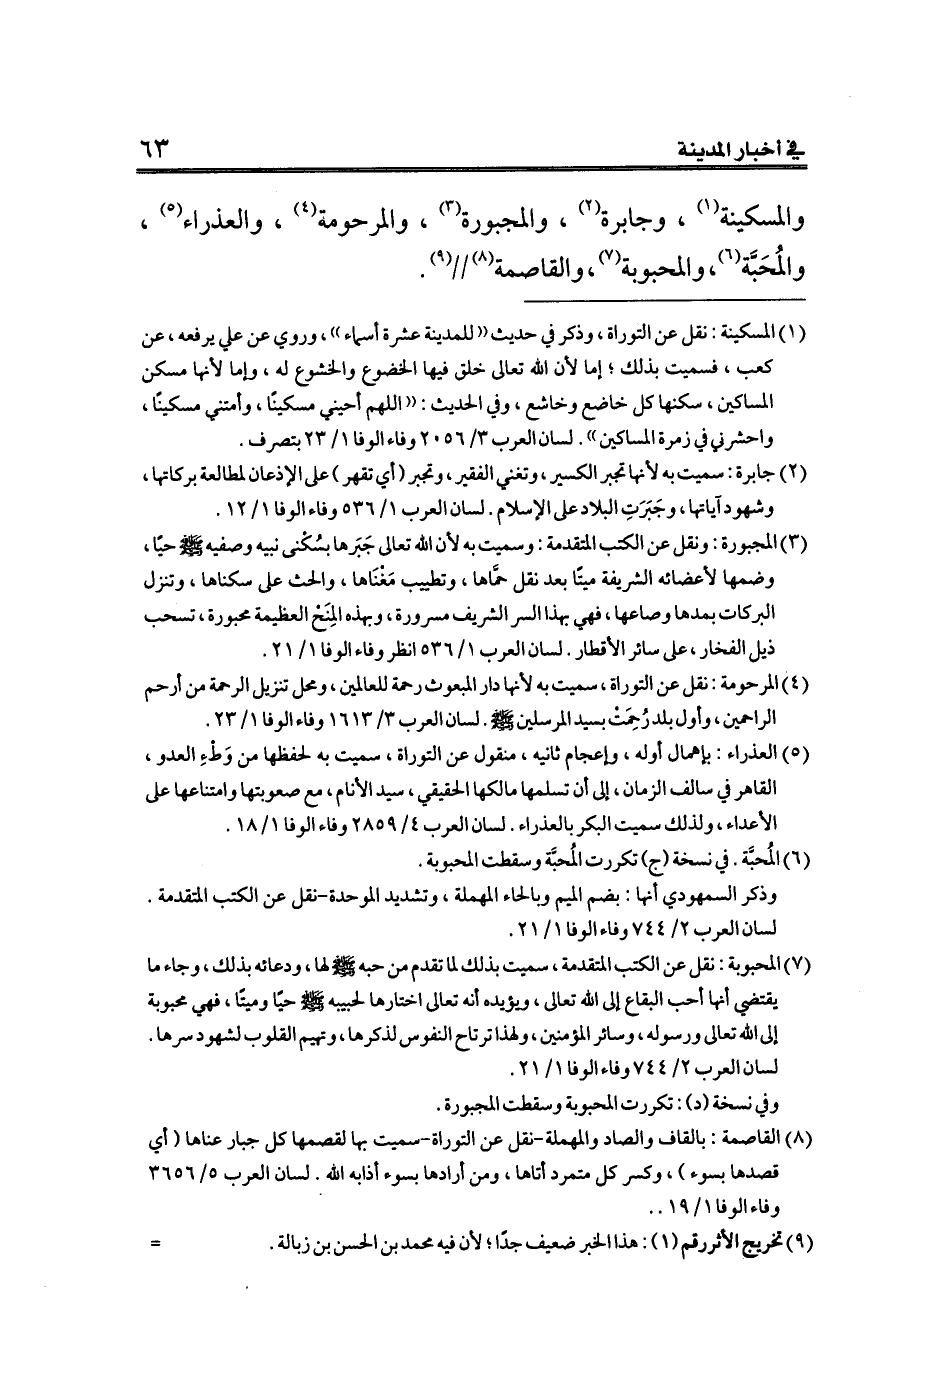 في أخبار المدينة ٦٣
والمسكينة(١) ، وجابرة(٢) ، والمجبورة(٣) ، والمرحومة(٤) ، والعذراء(٥) ،
والمُحَبَّة(٦)، والمحبوبة(٧)، والقاصمة(٨)//(٩).
(١) المسكينة : نقل عن التوراة ، وذكر في حديث «للمدينة عشرة أسماء» ، وروي عن علي يرفعه ، عن
كعب ، فسميت بذلك ؛ إما لأن الله تعالى خلق فيها الخضوع والخشوع له ، وإما لأنها مسكن
المساكين ، سكنها كل خاضع وخاشع ، وفي الحديث : «اللهم أحيني مسكينًا ، وأمتني مسكينًا ،
واحشرني في زمرة المساكين» . لسان العرب ٣/ ٢٠٥٦ وفاء الوفا ١/ ٢٣ بتصرف .
(٢) جابرة : سميت به لأنها تجبر الكسير ، وتغني الفقير ، وتجبر (أي تقهر ) على الإذعان لمطالعة بركاتها ،
وشهود آياتها ، وجَبَرَتِ البلاد على الإسلام . لسان العرب ١/ ٥٣٦ وفاء الوفا ١/ ١٢ .
(٣) المجبورة : ونقل عن الكتب المتقدمة : وسميت به لأن الله تعالى جَبَرها بسُكْنى نبيه وصفيه ﷺ حيًا ،
وضمها لأعضائه الشريفة ميتًا بعد نقل حمَّاها ، وتطييب مَغْنَاها ، والحث على سكناها ، وتنزل
البركات بمدها وصاعها ، فهي بهذا السر الشريف مسرورة ، وبهذه المِنَحْ العظيمة محبورة ، تسحب
ذيل الفخار ، على سائر الأقطار . لسان العرب ١/ ٥٣٦ انظر وفاء الوفا ١/ ٢١ .
(٤) المرحومة : نقل عن التوراة ، سميت به لأنها دار المبعوث رحمة للعالمين ، ومحل تنزيل الرحمة من أرحم
الراحمين ، وأول بلد رُحِمَتْ بسيد المرسلين ﷺ . لسان العرب ٣/ ١٦١٣ وفاء الوفا ١/ ٢٣ .
(٥) العذراء : بإهمال أوله ، وإعجام ثانيه ، منقول عن التوراة ، سميت به لحفظها من وَطْءِ العدو ،
القاهر في سالف الزمان ، إلى أن تسلمها مالكها الحقيقي ، سيد الأنام ، مع صعوبتها وامتناعها على
الأعداء ، ولذلك سميت البكر بالعذراء . لسان العرب ٤/ ٢٨٥٩ وفاء الوفا ١/ ١٨ .
(٦) المُحبَّة . في نسخة (ج) تكررت المُحبَّة وسقطت المحبوبة .
وذكر السمهودي أنها : بضم الميم وبالحاء المهملة ، وتشديد الموحدة-نقل عن الكتب المتقدمة .
لسان العرب ٢/ ٧٤٤ وفاء الوفا ١/ ٢١ .
(٧) المحبوبة : نقل عن الكتب المتقدمة ، سميت بذلك لما تقدم من حبه ﷺ لها ، ودعائه بذلك ، وجاء ما
يقتضي أنها أحب البقاع إلى الله تعالى ، ويؤيده أنه تعالى اختارها لحبيبه ﷺ حيًا وميتًا ، فهي محبوبة
إلى الله تعالى ورسوله ، وسائر المؤمنين ، ولهذا ترتاح النفوس لذكرها ، وتهيم القلوب لشهود سرها .
لسان العرب ٢/ ٧٤٤ وفاء الوفا ١/ ٢١ .
وفي نسخة (د) : تكررت المحبوبة وسقطت المجبورة .
(٨) القاصمة : بالقاف والصاد والمهملة-نقل عن التوراة-سميت بها لقصمها كل جبار عناها ( أي
قصدها بسوء ) ، وكسر كل متمرد أتاها ، ومن أرادها بسوء أذابه الله . لسان العرب ٥/ ٣٦٥٦
وفاء الوفا ١/ ١٩ . .
(٩) تخريج الأثر رقم (١) : هذا الخبر ضعيف جدًا ؛ لأن فيه محمد بن الحسن بن زبالة . =